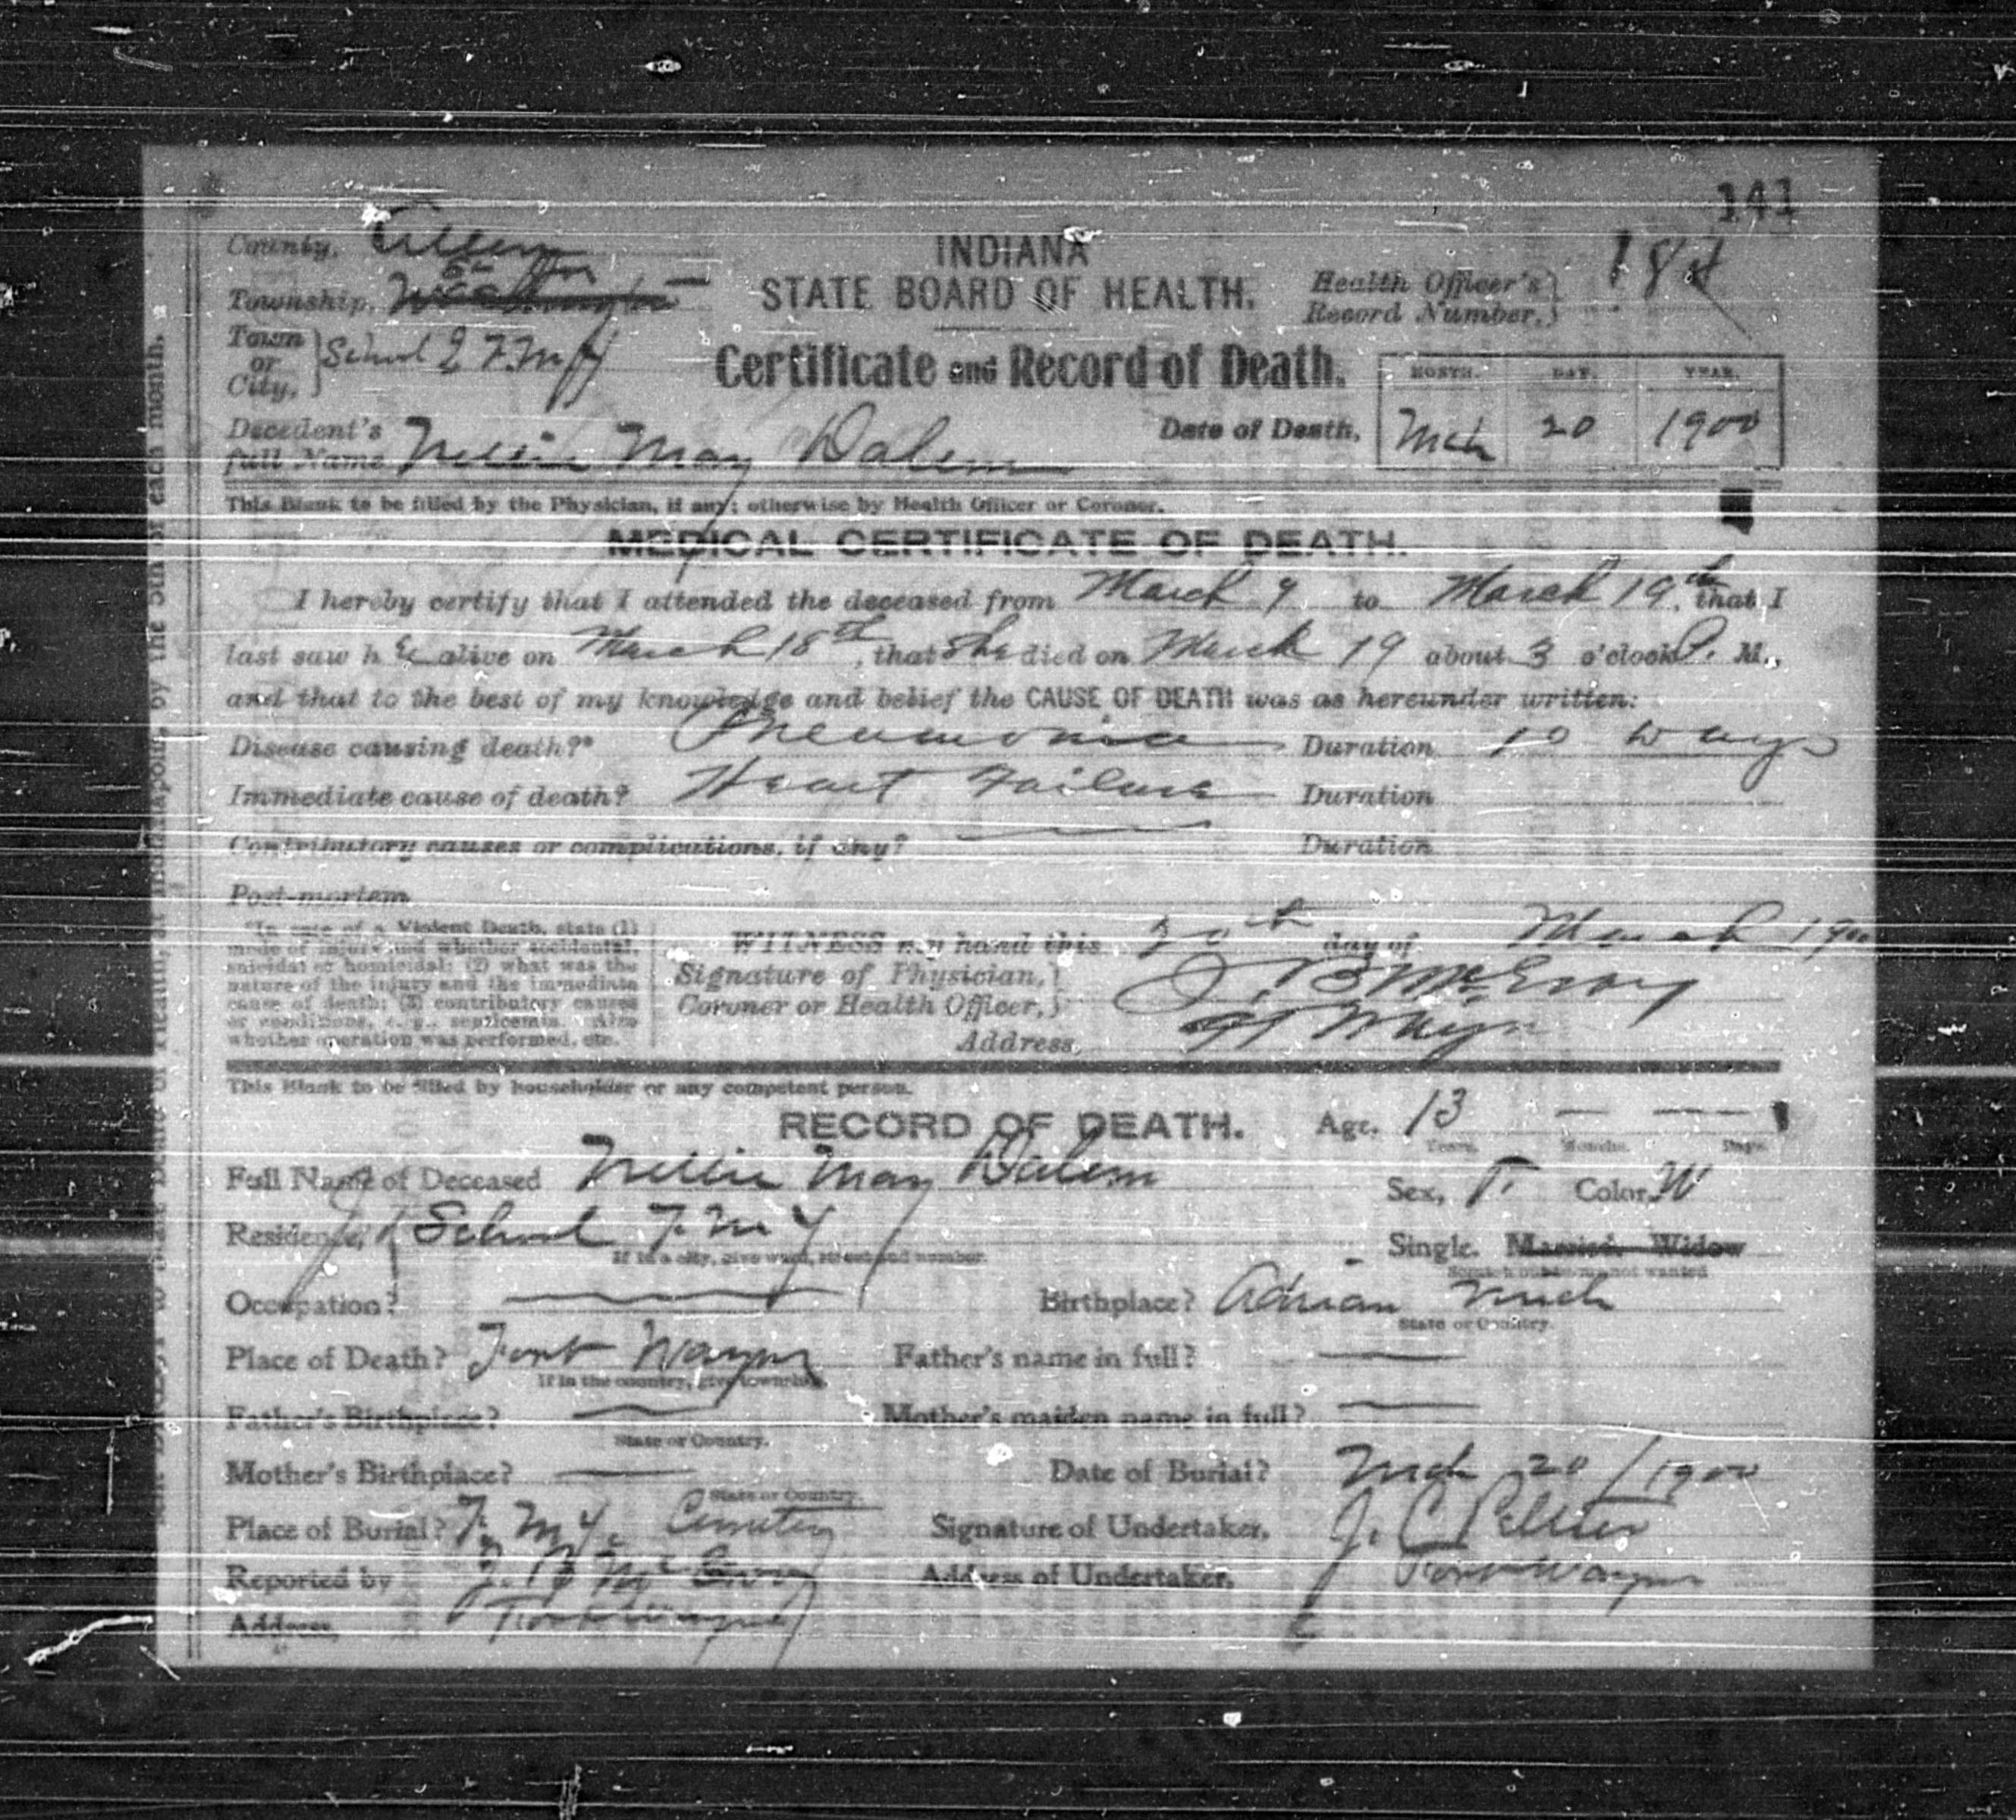 141
County, Allen
INDIANA
STATE BOARD OF HEALTH.
Township, Washington
Health Officer's Record Number, 184
Town or City, School F. M. Y
Certificate and Record of Death.
MONTH. DAY. YEAR.
Decedent's full Name Nellie May Dalem
Date of Death, Mch 20 1900
This Blank to be filled by the Physician, if any; otherwise by Health Officer or Coroner.
MEDICAL CERTIFICATE OF DEATH.
I hereby certify that I attended the deceased from March 9 to March 19th that I
last saw h er alive on March 18th, that she died on March 19 about 3 o'clock P. M.,
and that to the best of my knowledge and belief the CAUSE OF DEATH was as hereunder written:
Disease causing death?* Pneumonia Duration 10 Days
Immediate cause of death? Heart Failure Duration
Contributory causes or complications, if any? Duration
Post-mortem
*In case of a Violent Death, state (1)
mode of injury and whether accidental,
suicidal or homicidal; (2) what was the
nature of the injury and the immediate
cause of death; (3) contributory causes
or conditions, e. g., septicemia. Also
whether operation was performed, etc.
WITNESS my hand this 20th day of March 1900
Signature of Physician, Coroner or Health Officer, J. B. McEvoy
Address, Ft Wayne
This Blank to be filled by householder or any competent person.
RECORD OF DEATH.
Age, 13
Years. Months. Days.
Full Name of Deceased Nellie May Dalem
Sex, F. Color, W
Residence, School F. M. Y
If in a city, give ward, street and number.
Single. Married. Widow
Scratch out terms not wanted
Occupation?
Birthplace? Adrian Mich
State or Country.
Place of Death? Fort Wayne
If in the country, give township.
Father's name in full?
Father's Birthplace?
State or Country.
Mother's maiden name in full?
Mother's Birthplace?
State or Country.
Date of Burial? Mch 20/1900
Place of Burial? F. M. Y. Cemetery
Signature of Undertaker, J. C. Peltier
Reported by J. B. McEvoy
Address of Undertaker, Fort Wayne
Address, Fort Wayne